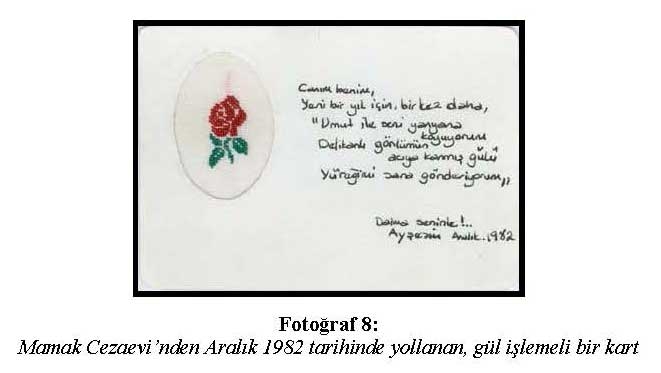 Canım benim,
Yeni bir yıl için, bir kez daha,
"Umut ile seni yanyana
koyuyorum
Delikanlı gönlümün
acıya kanmış gülü
Yüreğimi sana gönderiyorum"
Daima seninle!..
Aralık.1982
Fotoğraf 8:
Mamak Cezaevi'nden Aralık 1982 tarihinde yollanan, gül işlemeli bir kart